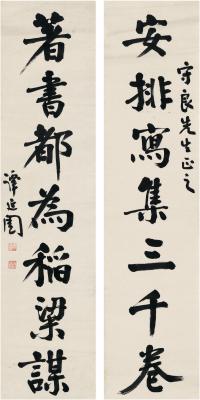 守良先生正之
安排寫集三千卷
著書都為稻粱謀
譚延闓